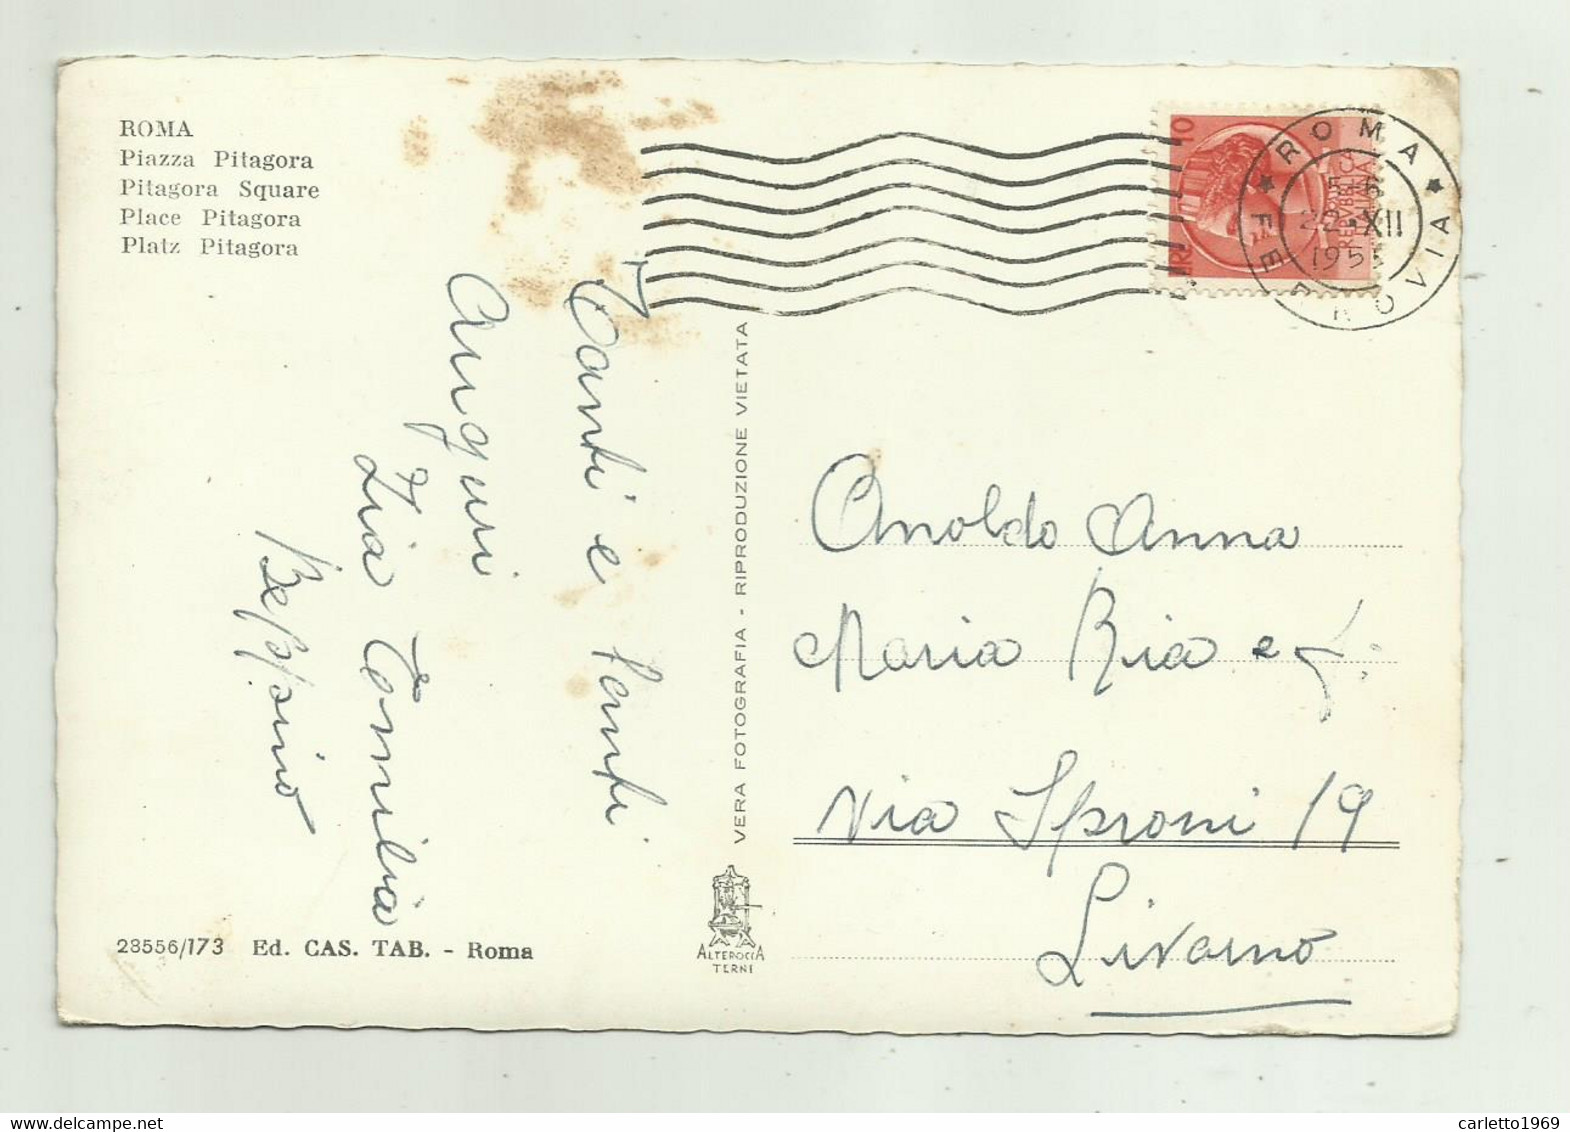 ROMA
Piazza Pitagora
Pitagora Square
Place Pitagora
Platz Pitagora
Tanti e tanti
auguri
Zia Tomilia
Beppino
VERA FOTOGRAFIA - RIPRODUZIONE VIETATA
10
LIRE
REPVBBLICA
ITALIANA
ROMA
FERROVIA
22·XII
1955
Anoldo Anna
Maria Bia e
Via Sproni 19
Livorno
28556/173 Ed. CAS. TAB. - Roma
ALTEROCCA
TERNI
carletto1969